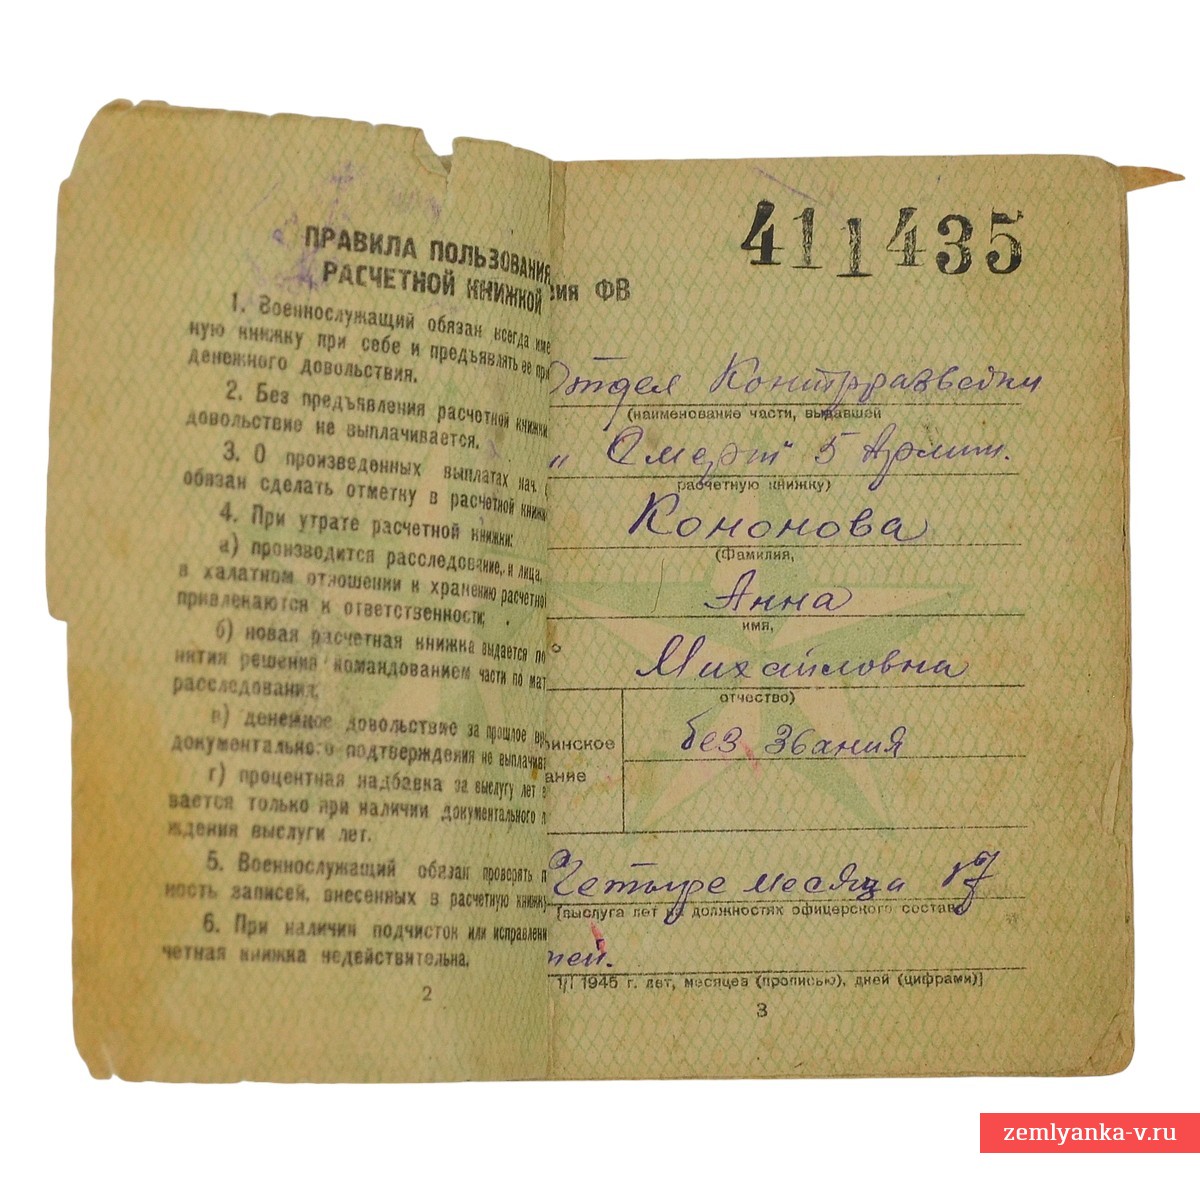 ПРАВИЛА ПОЛЬЗОВАНИЯ
РАСЧЕТНОЙ КНИЖКОЙ
1. Военнослужащий обязан всегда име
ную книжку при себе и предъявлять ее при
денежного довольствия.
2. Без предъявления расчетной книжки
довольствие не выплачивается.
3. О произведенных выплатах нач.
обязан сделать отметку в расчетной книжк
4. При утрате расчетной книжки:
а) производится расследование, и лица,
в халатном отношении к хранению расчетной
привлекаются к ответственности;
б) новая расчетная книжка выдается по
нятия решения командованием части по мат
расследования;
в) денежное довольствие за прошлое вре
документального подтверждения не выплачив
г) процентная надбавка за выслугу лет
вается только при наличии документального
ждения выслуги лет.
5. Военнослужащий обязан проверять п
ность записей, внесенных в расчетную книжку
6. При наличии подчисток или исправлени
четная книжка недействительна.
2
411435
ия ФВ
Отдел Контрразведки
(наименование части, выдавшей
„Смерш" 5 Армии.
расчетную книжку)
Кононова
(Фамилия,
Анна
имя,
Михайловна
отчество)
инское
ание
без звания
Четыре месяца 17
[выслуга лет на должностях офицерского состава
ней.
1/I 1945 г. лет, месяцев (прописью), дней (цифрами)]
3
zemlyanka-v.ru